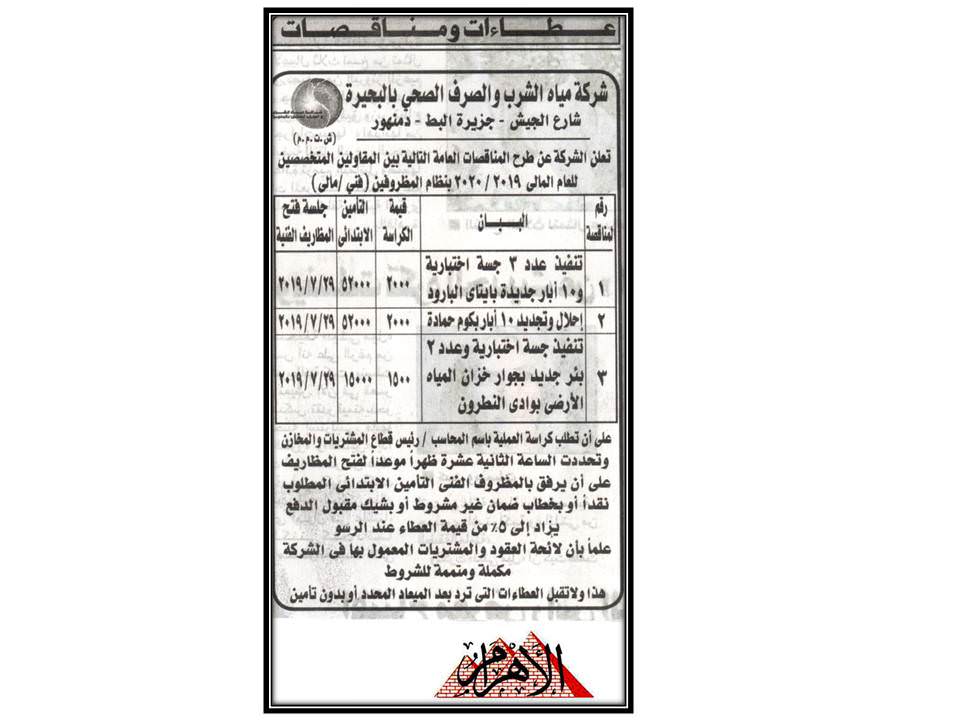 عطاءات ومناقصات
شركة مياه الشرب والصرف الصحي بالبحيرة
شارع الجيش - جزيرة البط - دمنهور
(ش.ت.م.م)
تعلن الشركة عن طرح المناقصات العامة التالية بين المقاولين المتخصصين
للعام المالى ٢٠١٩ / ٢٠٢٠ بنظام المظروفين (فني /مالى)
رقم لمناقصة | البيان | قيمة الكراسة | التأمين الابتدائى | جلسة فتح المظاريف الفنية
١ | تنفيذ عدد ٣ جسة اختبارية و١٠ أبار جديدة بايتاى البارود | ٢٠٠٠ | ٥٢٠٠٠ | ٢٠١٩/٧/٢٩
٢ | إحلال وتجديد ١٠ أبار بكوم حمادة | ٢٠٠٠ | ٥٢٠٠٠ | ٢٠١٩/٧/٢٩
٣ | تنفيذ جسة اختبارية وعدد ٢ بئر جديد بجوار خزان المياه الأرضى بوادى النطرون | ١٥٠٠ | ١٥٠٠٠ | ٢٠١٩/٧/٢٩
على أن تطلب كراسة العملية باسم المحاسب / رئيس قطاع المشتريات والمخازن
وتحددت الساعة الثانية عشرة ظهراً موعداً لفتح المظاريف
على أن يرفق بالمظروف الفنى التأمين الابتدائى المطلوب
نقداً أو بخطاب ضمان غير مشروط أو بشيك مقبول الدفع
يزاد إلى ٥٪ من قيمة العطاء عند الرسو
علماً بأن لائحة العقود والمشتريات المعمول بها فى الشركة
مكملة ومتممة للشروط
هذا ولاتقبل العطاءات التى ترد بعد الميعاد المحدد أو بدون تأمين
الأهرام